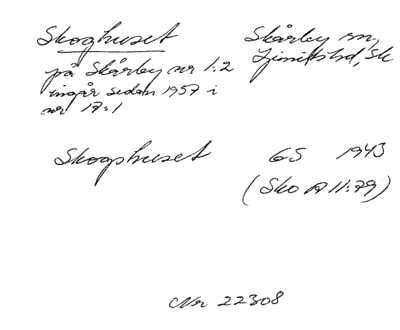 Skoghuset
Skårby sn,
Ljunits hd, Sk
på Skårby nr 1:2
ingår sedan 1957 i
nr 17:1
Skogshuset GS 1943
(Sko A 11:79)
Nr 22308